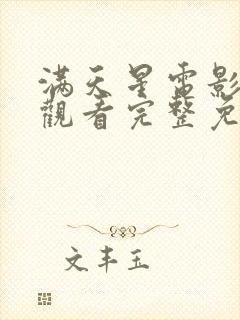 滿天星電影
觀看完整免
文丰玉